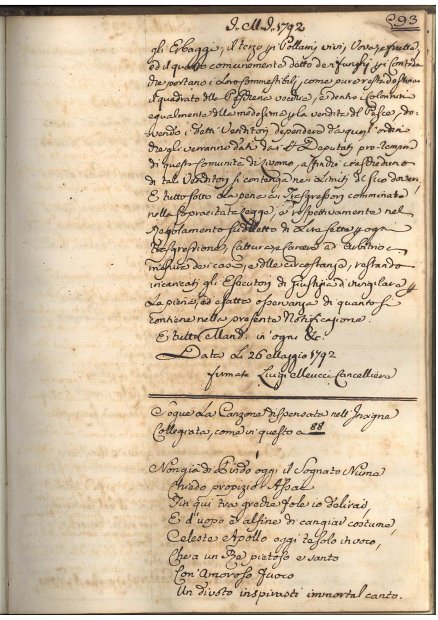 I. M. I. 1792
293
gli Erbaggi; il terzo pi Pollami vivi, Uova, e frutta,
ed il quarto concernente datto de i funghi, pi Contadi
che portano i loro Commestibili; come pure resta destinato
il quadrato delle Pescherie vecchie, e dentro i Colonnini
egualmente alla medesima p la vendita del Pesce, do-
vendo i detti Venditori dependere da quegli ordini
che gli verranno dati dai Deputati pro tempore
di questa Comunità di Livorno, affinchè ciascheduno
di tali Venditori si contenga nei limiti del suo dovere,
E tutto sotto la pena ai Trasgressori comminata
nella sopracitata Legge, e respettivamente nel
Regolamento suddetto di Lire sette p ogni
Trasgressione, Cattura, e Carcere ad arbitrio e
misura dei casi, e delle circostanze, restando
incaricati gli Esecutori di Giustizia d'invigilare p
la piena, ed esatta osservanza di quanto si
contiene nella presente Notificazione.
E tutto Mand. in ogni &c.
Data Li 26 Maggio 1792
firmato Luigi Meucci Cancelliere
Segue La Canzone dispensata nell'Insigne
Collegiata, come in questo a 88
Non già di Pindo oggi il Sognato Nume
Chiedo propizio
Fin qui tra gredre fole io delirai,
E d'uopo è alfine di cangiar costume,
Celeste Apollo oggi te solo invoco,
Che a un Re pietoso e santo
Con Amoroso fuoco
Un divoto inspirasti immortal canto.